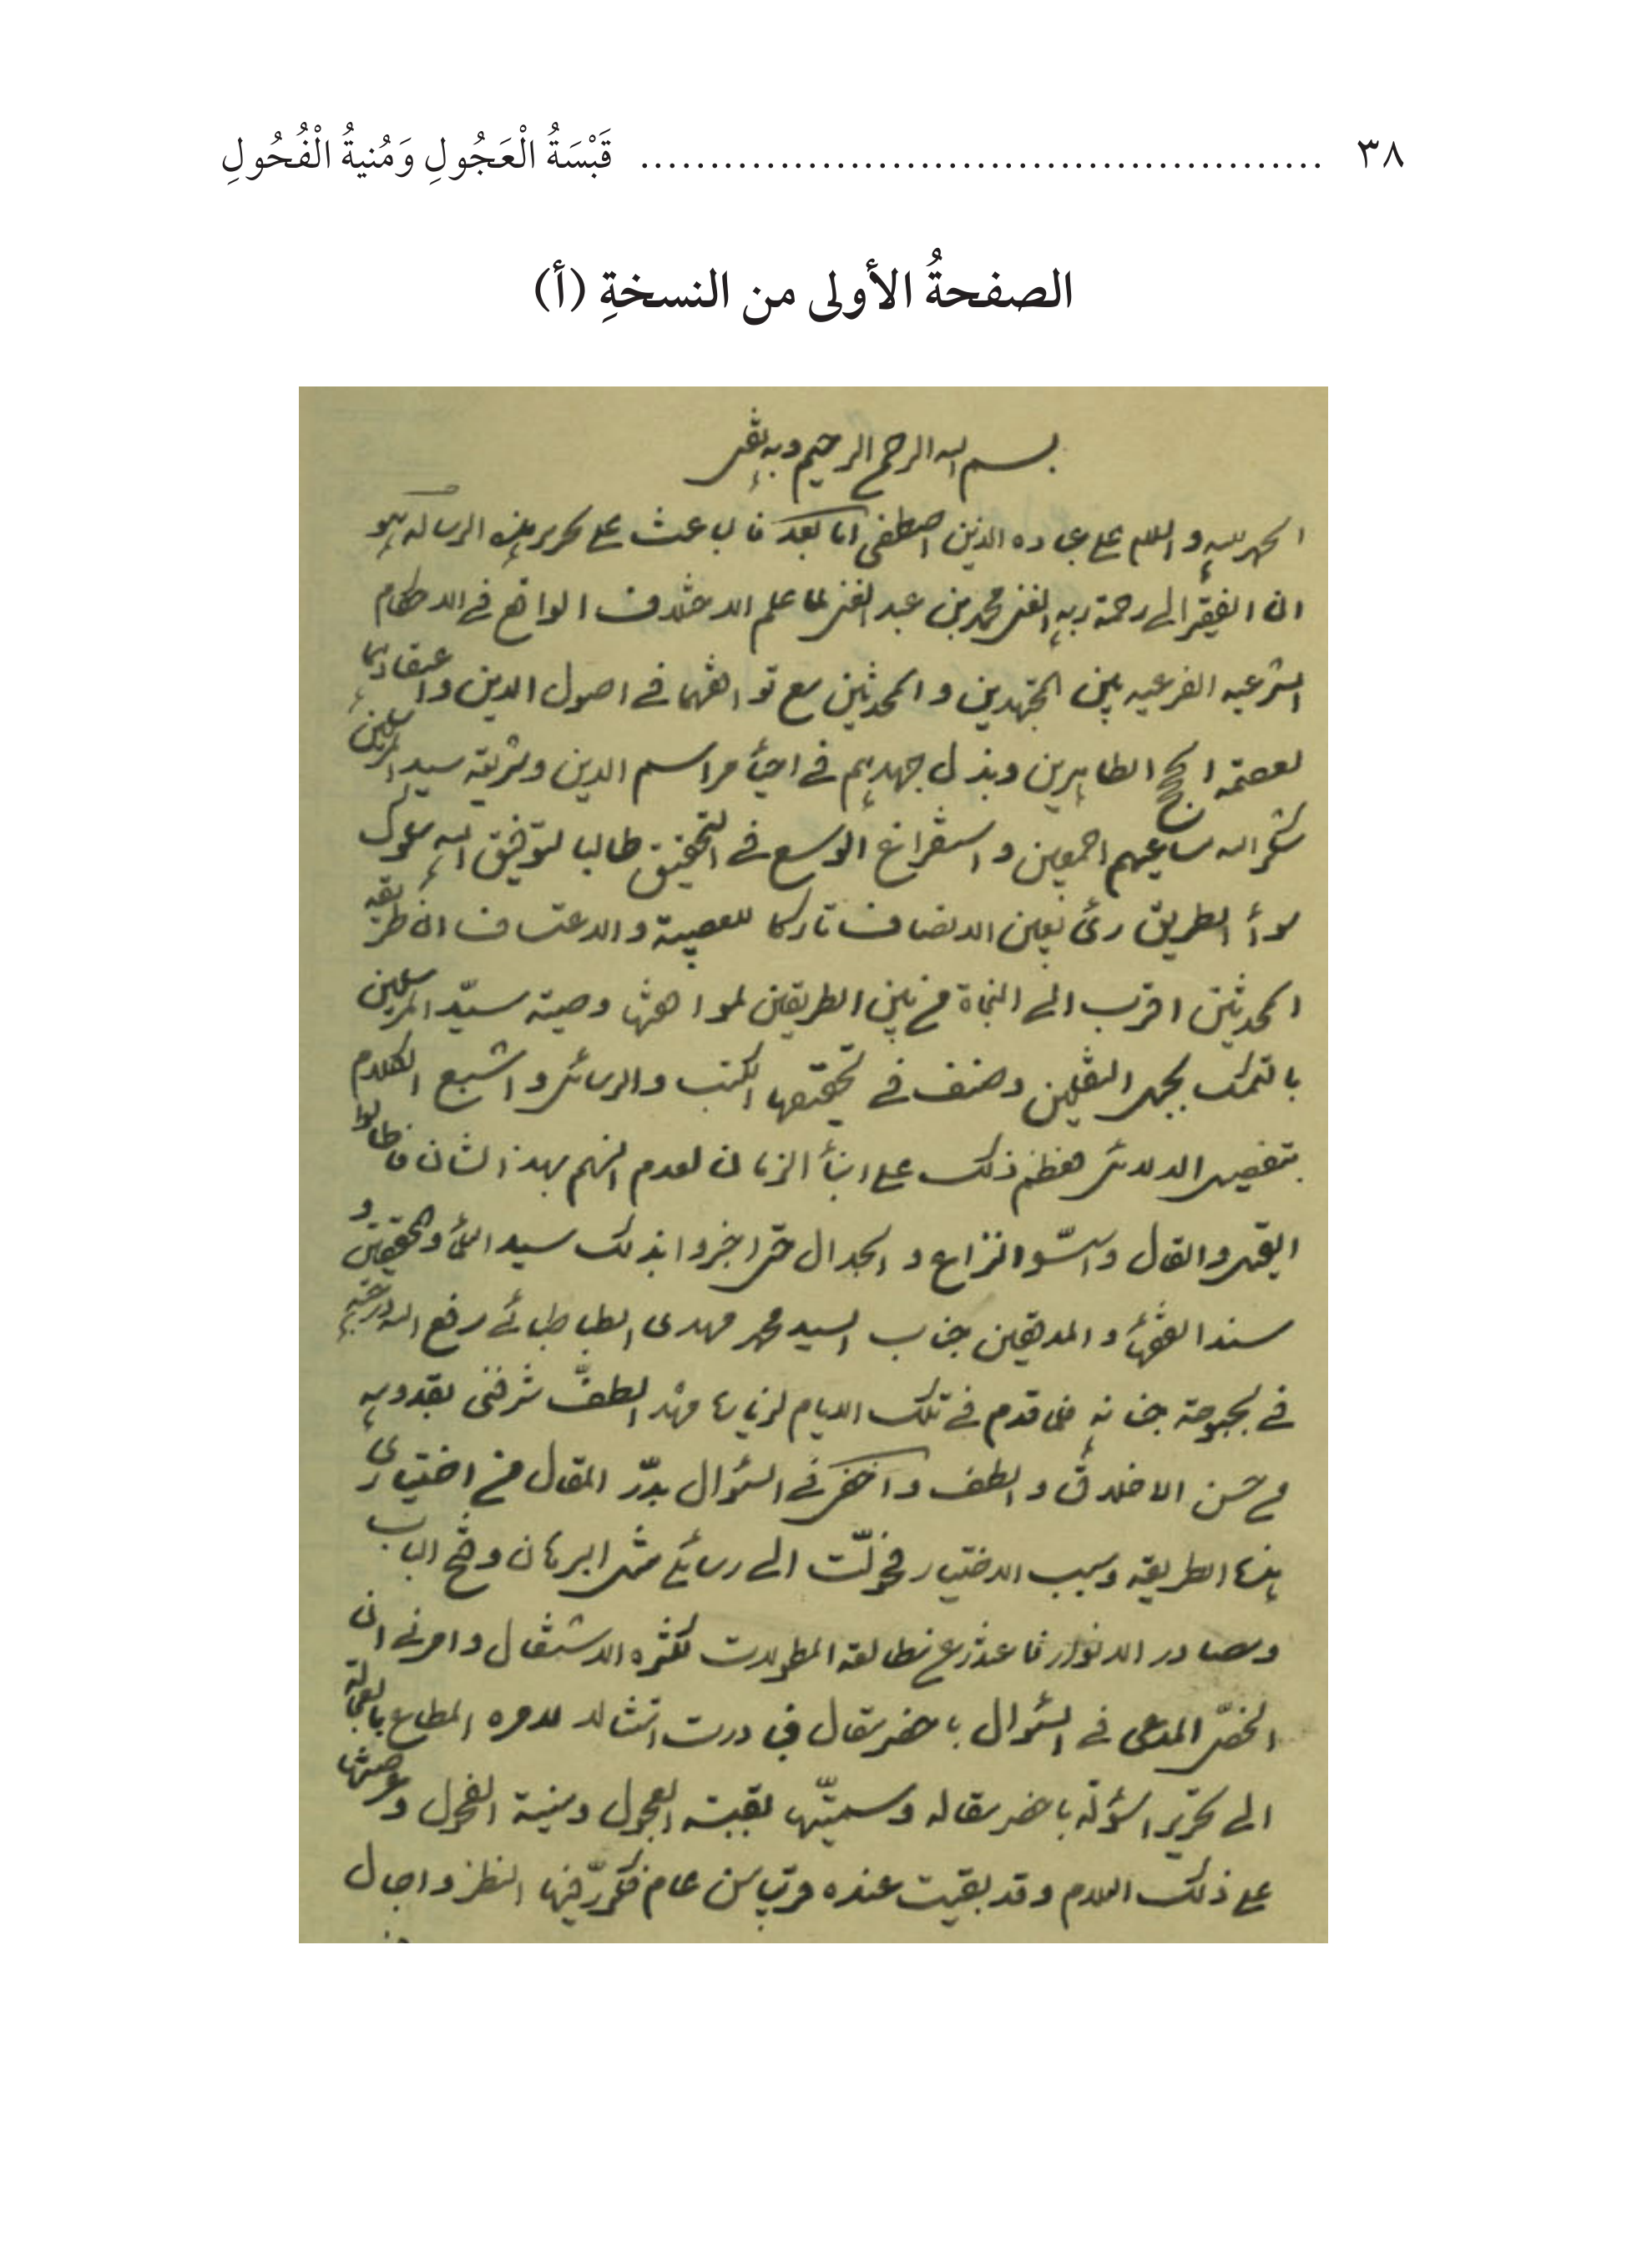 ٣٨ ................................................. قَبْسَةُ الْعَجُولِ وَمُنيةُ الْفُحُولِ
الصفحةُ الأولى من النسخةِ (أ)
بسم الله الرحمن الرحيم وبه ثقتى
الحمد لله والسلام على عباده الذين اصطفى اما بعد فالباعث على تحرير هذه الرساله هو
ان الفقير الى رحمة ربه الغنى محمد بن عبد الغنى لما علم الاختلاف الواقع فى الاحكام
الشرعيه الفرعيه بين المجتهدين والمحدثين مع توافقهما فى اصول الدين واعتقادهما
لعصمة الحجج الطاهرين وبذل جهدهم فى احيآء مراسم الدين وشريعة سيد المرسلين
شكر الله مساعيهم اجمعين واستفراغ الوسع فى التحقيق طالبا لتوفيق الله سلوك
سوآء الطريق رئ بعين الانصاف تاركا للعصبية والاعتساف ان طريقة
المحدثين اقرب الى النجاة من بين الطريقين لموافقتها وصية سيّد المرسلين
بالتمسك بحبل الثقلين وصنف فى تحقيقها الكتب والرسائل واشبع الكلام
بتفصيل الدلائل فعظم ذلك على ابنآء الزمان لعدم انسهم بهذا الشان فاطالوا
القيل والقال واسّسوا النزاع والجدال حتى اخبروا بذلك سيد العلمآء والمحققين و
سند الفقهآء والمدققين جناب السيد محمد مهدى الطباطبائى رفع الله درجته
فى بحبوحة جنانه فلما قدم فى تلك الايام لزيارة مشهد الطفّ شرفنى بقدومه
من حسن الاخلاق والطف واخفى فى السؤال بدرّ المقال من اختيارى
هذه الطريقه وسبب الاختيار فحوّلت الى رسائلى مثل البرهان وفتح الباب
ومصادر الانوار فاعتذر عن مطالعة المطولات لكثره الاشتغال وامرنى ان
الخصّ المدعى فى السؤال باخصر مقال فبادرت امتثالا لامره المطاع بالعجالة
الى تحرير اسؤلة باخصر مقاله وسميتّها بقبسة العجول ومنية الفحول وعرضتها
على ذلك العلام وقد بقيت عنده قريبا من عام فكرّر فيها النظر واجال